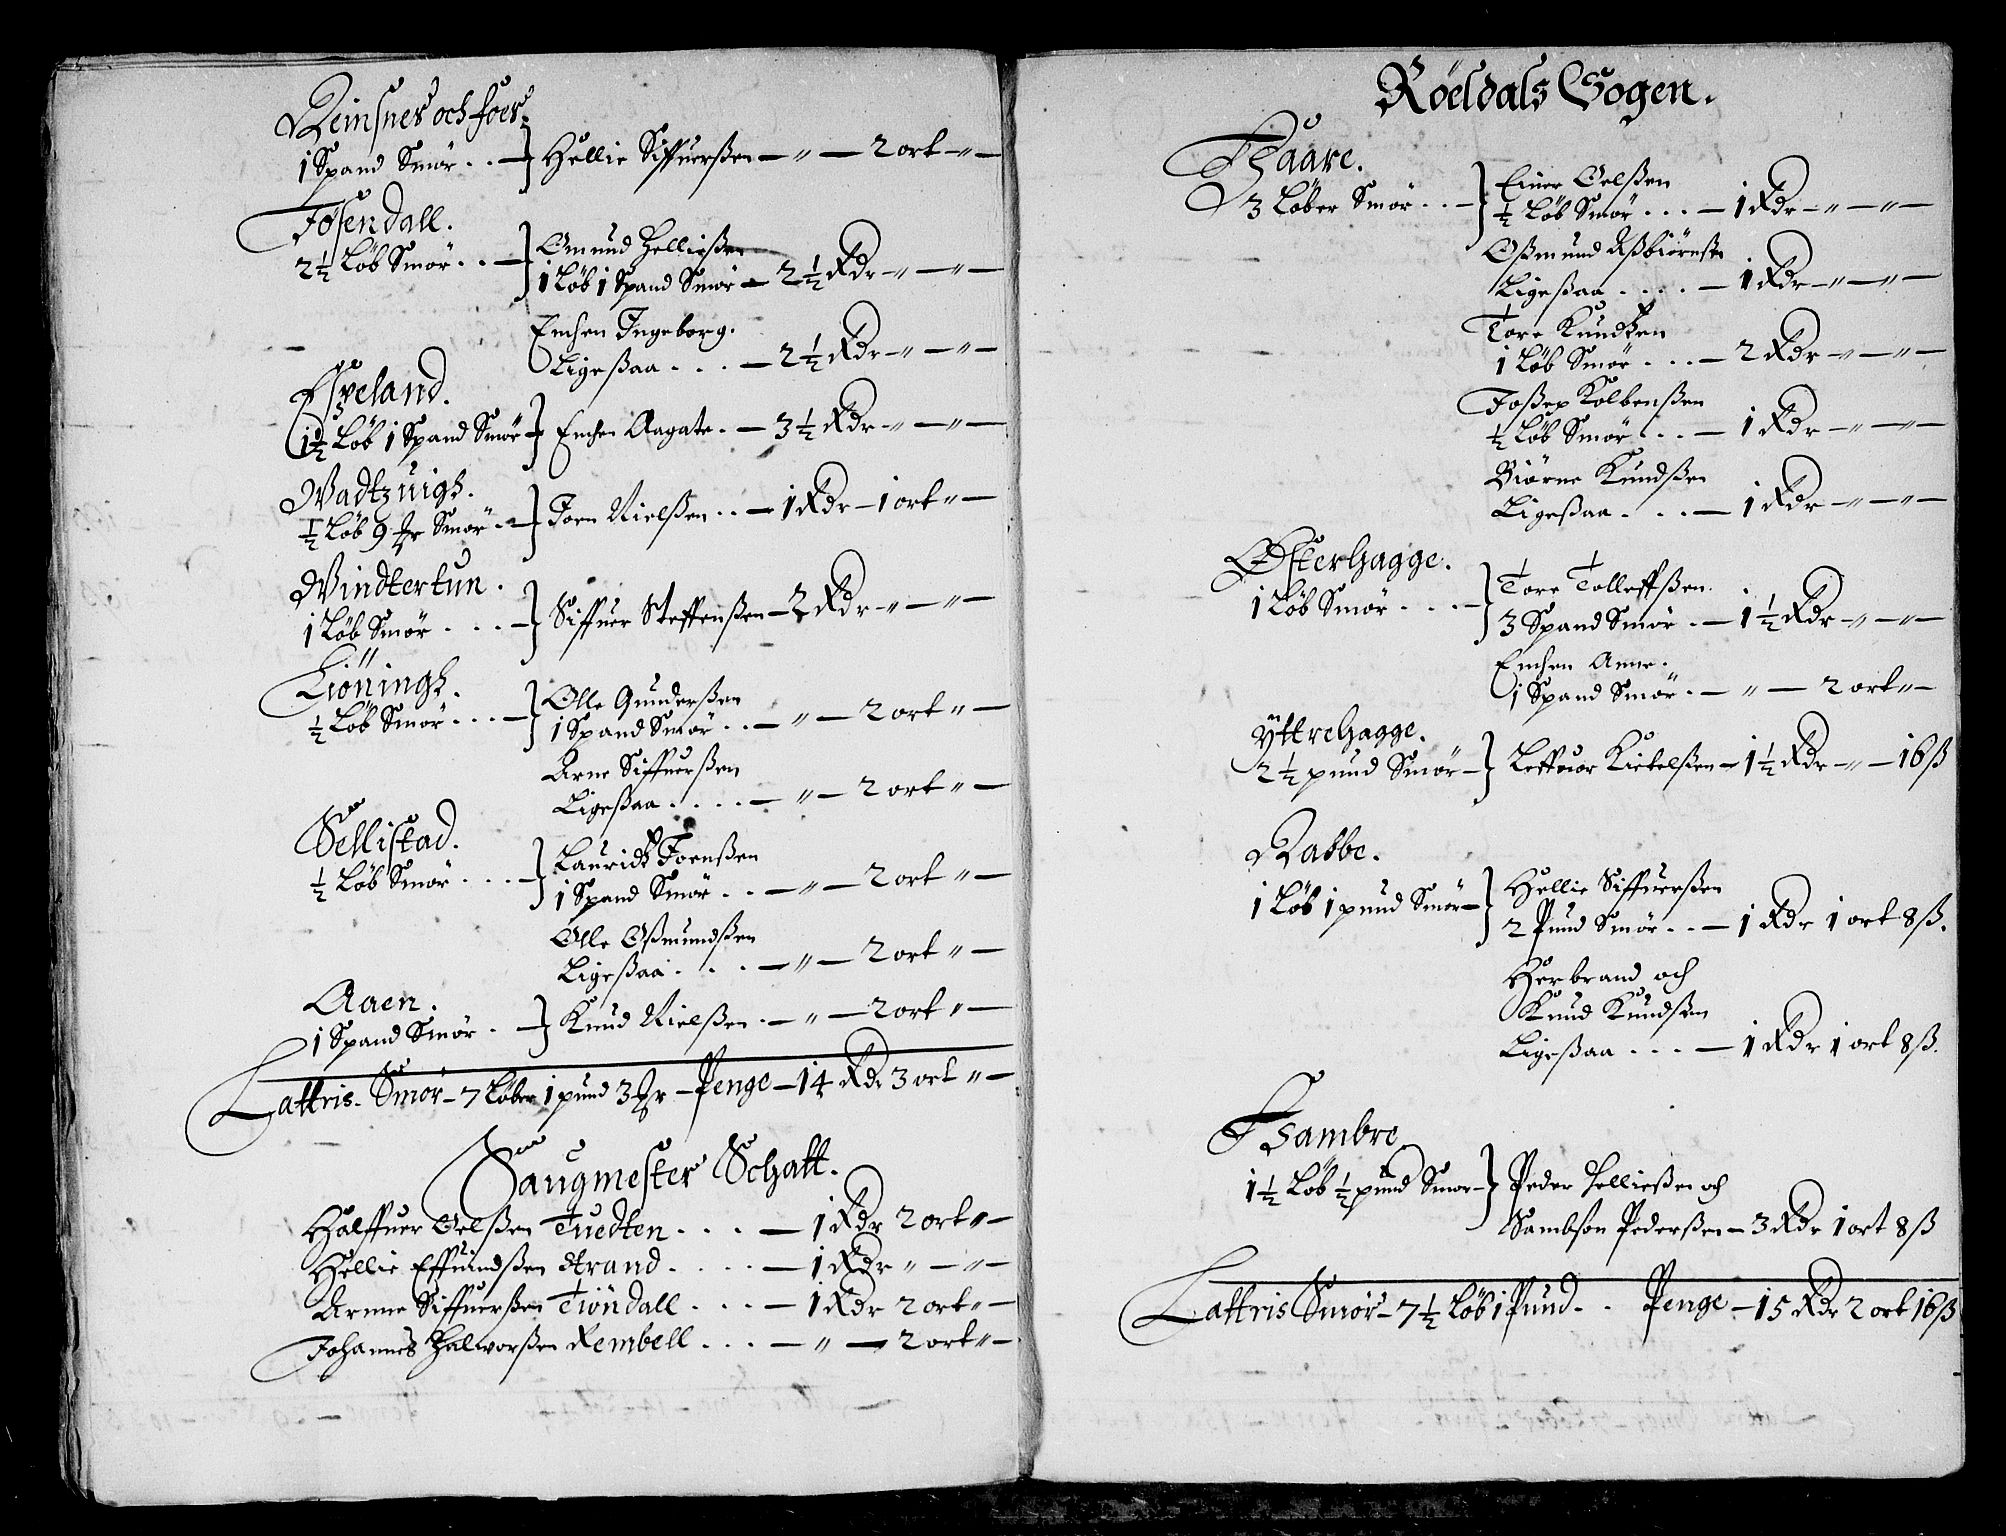 Reinsnes och foers.
1 Spand Smör . . — } Hellie Siffuerßen — " — 2 ort " —
Josendall.
2½ Löb Smör . . — } Omund Helließen
1 Löb 1 Spand Smör — 2½ Rdr — " — " —
Enchen Ingeborg.
Ligeßaa . . . — 2½ Rdr — " — " —
Espeland.
1½ Löb 1 Spand Smör — } Enchen Aagate . — 3½ Rdr — " — " —
Wadtzuigh.
½ Löb 9 Smör . — } Joen Nielßen . . — 1 Rdr — 1 ort " —
Windtertun.
1 Löb Smör . . . — } Siffuer Steffenßen — 2 Rdr — " — " —
Liöningh.
½ Löb Smör . . . — } Olle Gunderßen
1 Spand Smör . . — " — 2 ort " —
Arne Siffuerßen
Ligeßaa . . . . — " — 2 ort " —
Sellistad.
½ Löb Smör . . . — } Lauridtz Joenßen
1 Spand Smör . . — " — 2 ort " —
Olle Oßmundßen
Ligeßaa . . . — " — 2 ort " —
Aaen.
1 Spand Smör . — } Knud Nielßen . — " — 2 ort " —
Lattris. Smör — 7 Löber 1 pund 3 — Penge — 14 Rdr 3 ort " —
Saugmester Schatt.
Halffuer Oelßen Tuedten . . . — 1 Rdr 2 ort " —
Hellie Effuindßen Strand . . . . — 1 Rdr " — " —
Arnne Siffuerßen Tiöndall . . . — 1 Rdr 2 ort " —
Johannes Halworßen Rembell . . . — " — 2 ort " —
Röeldals Sogen.
Haare.
3 Löber Smör . . — } Einer Oelßen
½ Löb Smör . . . — 1 Rdr — " — " —
Oßmund Aßbiörnß
Ligeßaa . . . . — 1 Rdr — " — " —
Tore Knudßen
1 Löb Smör . . . — 2 Rdr — " — " —
Joßep Kolbenßen
½ Löb Smör . . . — 1 Rdr — " — " —
Biörne Knudßen
Ligeßaa . . . — 1 Rdr — " — " —
Østerhagge.
1 Löb Smör . . . — } Tore Tolleffßen.
3 Spand Smör . — 1½ Rdr — " — " —
Enchen Anne.
1 Spand Smör . — " — 2 ort " —
Yttrehagge.
2½ pund Smör — } Leffuor Kietelßen — 1½ Rdr — " — 16 ß
Rabbe.
1 Löb 1 pund Smör — } Hellie Siffuerßen
2 Pund Smör . . — 1 Rdr 1 ort 8 ß.
Herbrand och
Knud Knudßen
Ligeßaa . . . — 1 Rdr 1 ort 8 ß.
Hambre
1½ Löb ½ pund Smör — } Peder Helließen och
Sambson Pederßen — 3 Rdr 1 ort 8 ß
Lattris Smör — 7½ Löb 1 Pund . . Penge — 15 Rdr 2 ort 16 ß